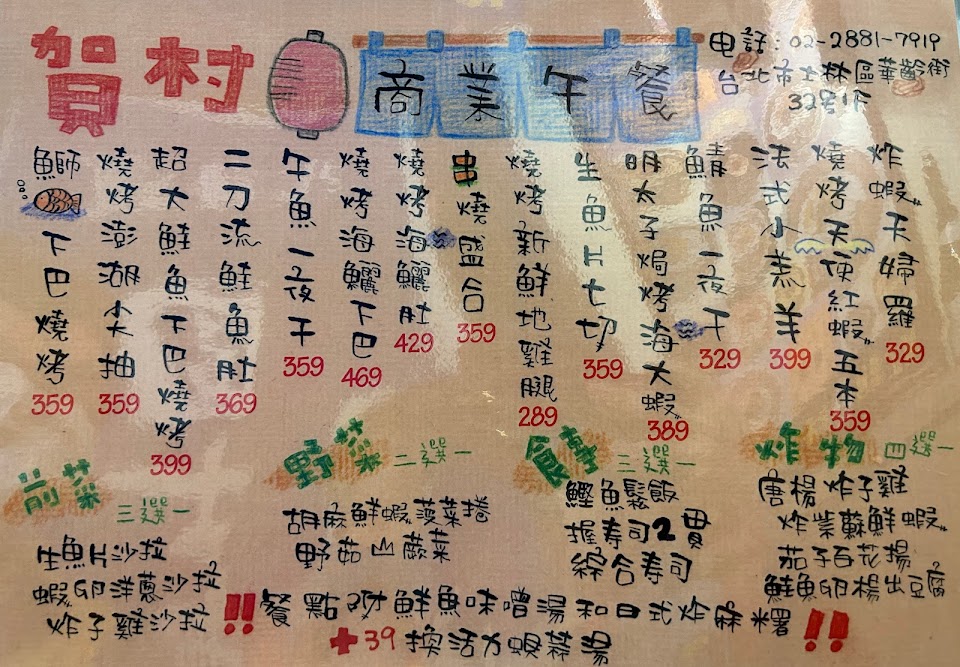 賀村
商業午餐
电話：02-2881-7919
台北市士林區華齡街
32号1F
鰤魚下巴燒烤
359
燒烤澎湖小抽
359
超大鮭魚下巴燒烤
399
二刀流鮭魚肚
369
午魚一夜干
359
燒烤海鱺下巴
469
燒烤海鱺肚
429
串燒盛合
359
燒烤新鮮地雞腿
289
生魚片七切
359
明太子焗烤海大蝦
389
鯖魚一夜干
329
法式小羔羊
399
燒烤天使紅蝦五本
359
炸蝦天婦羅
329
前菜 三選一
生魚片沙拉
蝦卵洋蔥沙拉
炸子雞沙拉
野菜 二選一
胡麻鮮蝦菠菜捲
野菇山蕨菜
食事 三選一
鰹魚鬆飯
握寿司2貫
綜合寿司
炸物 四選一
唐楊炸子雞
炸紫蘇鮮蝦
茄子百花揚
鮭魚卵楊出豆腐
!!餐點附鮮魚味噌湯和日式炸麻糬!!
+39換活力蜆蒜湯